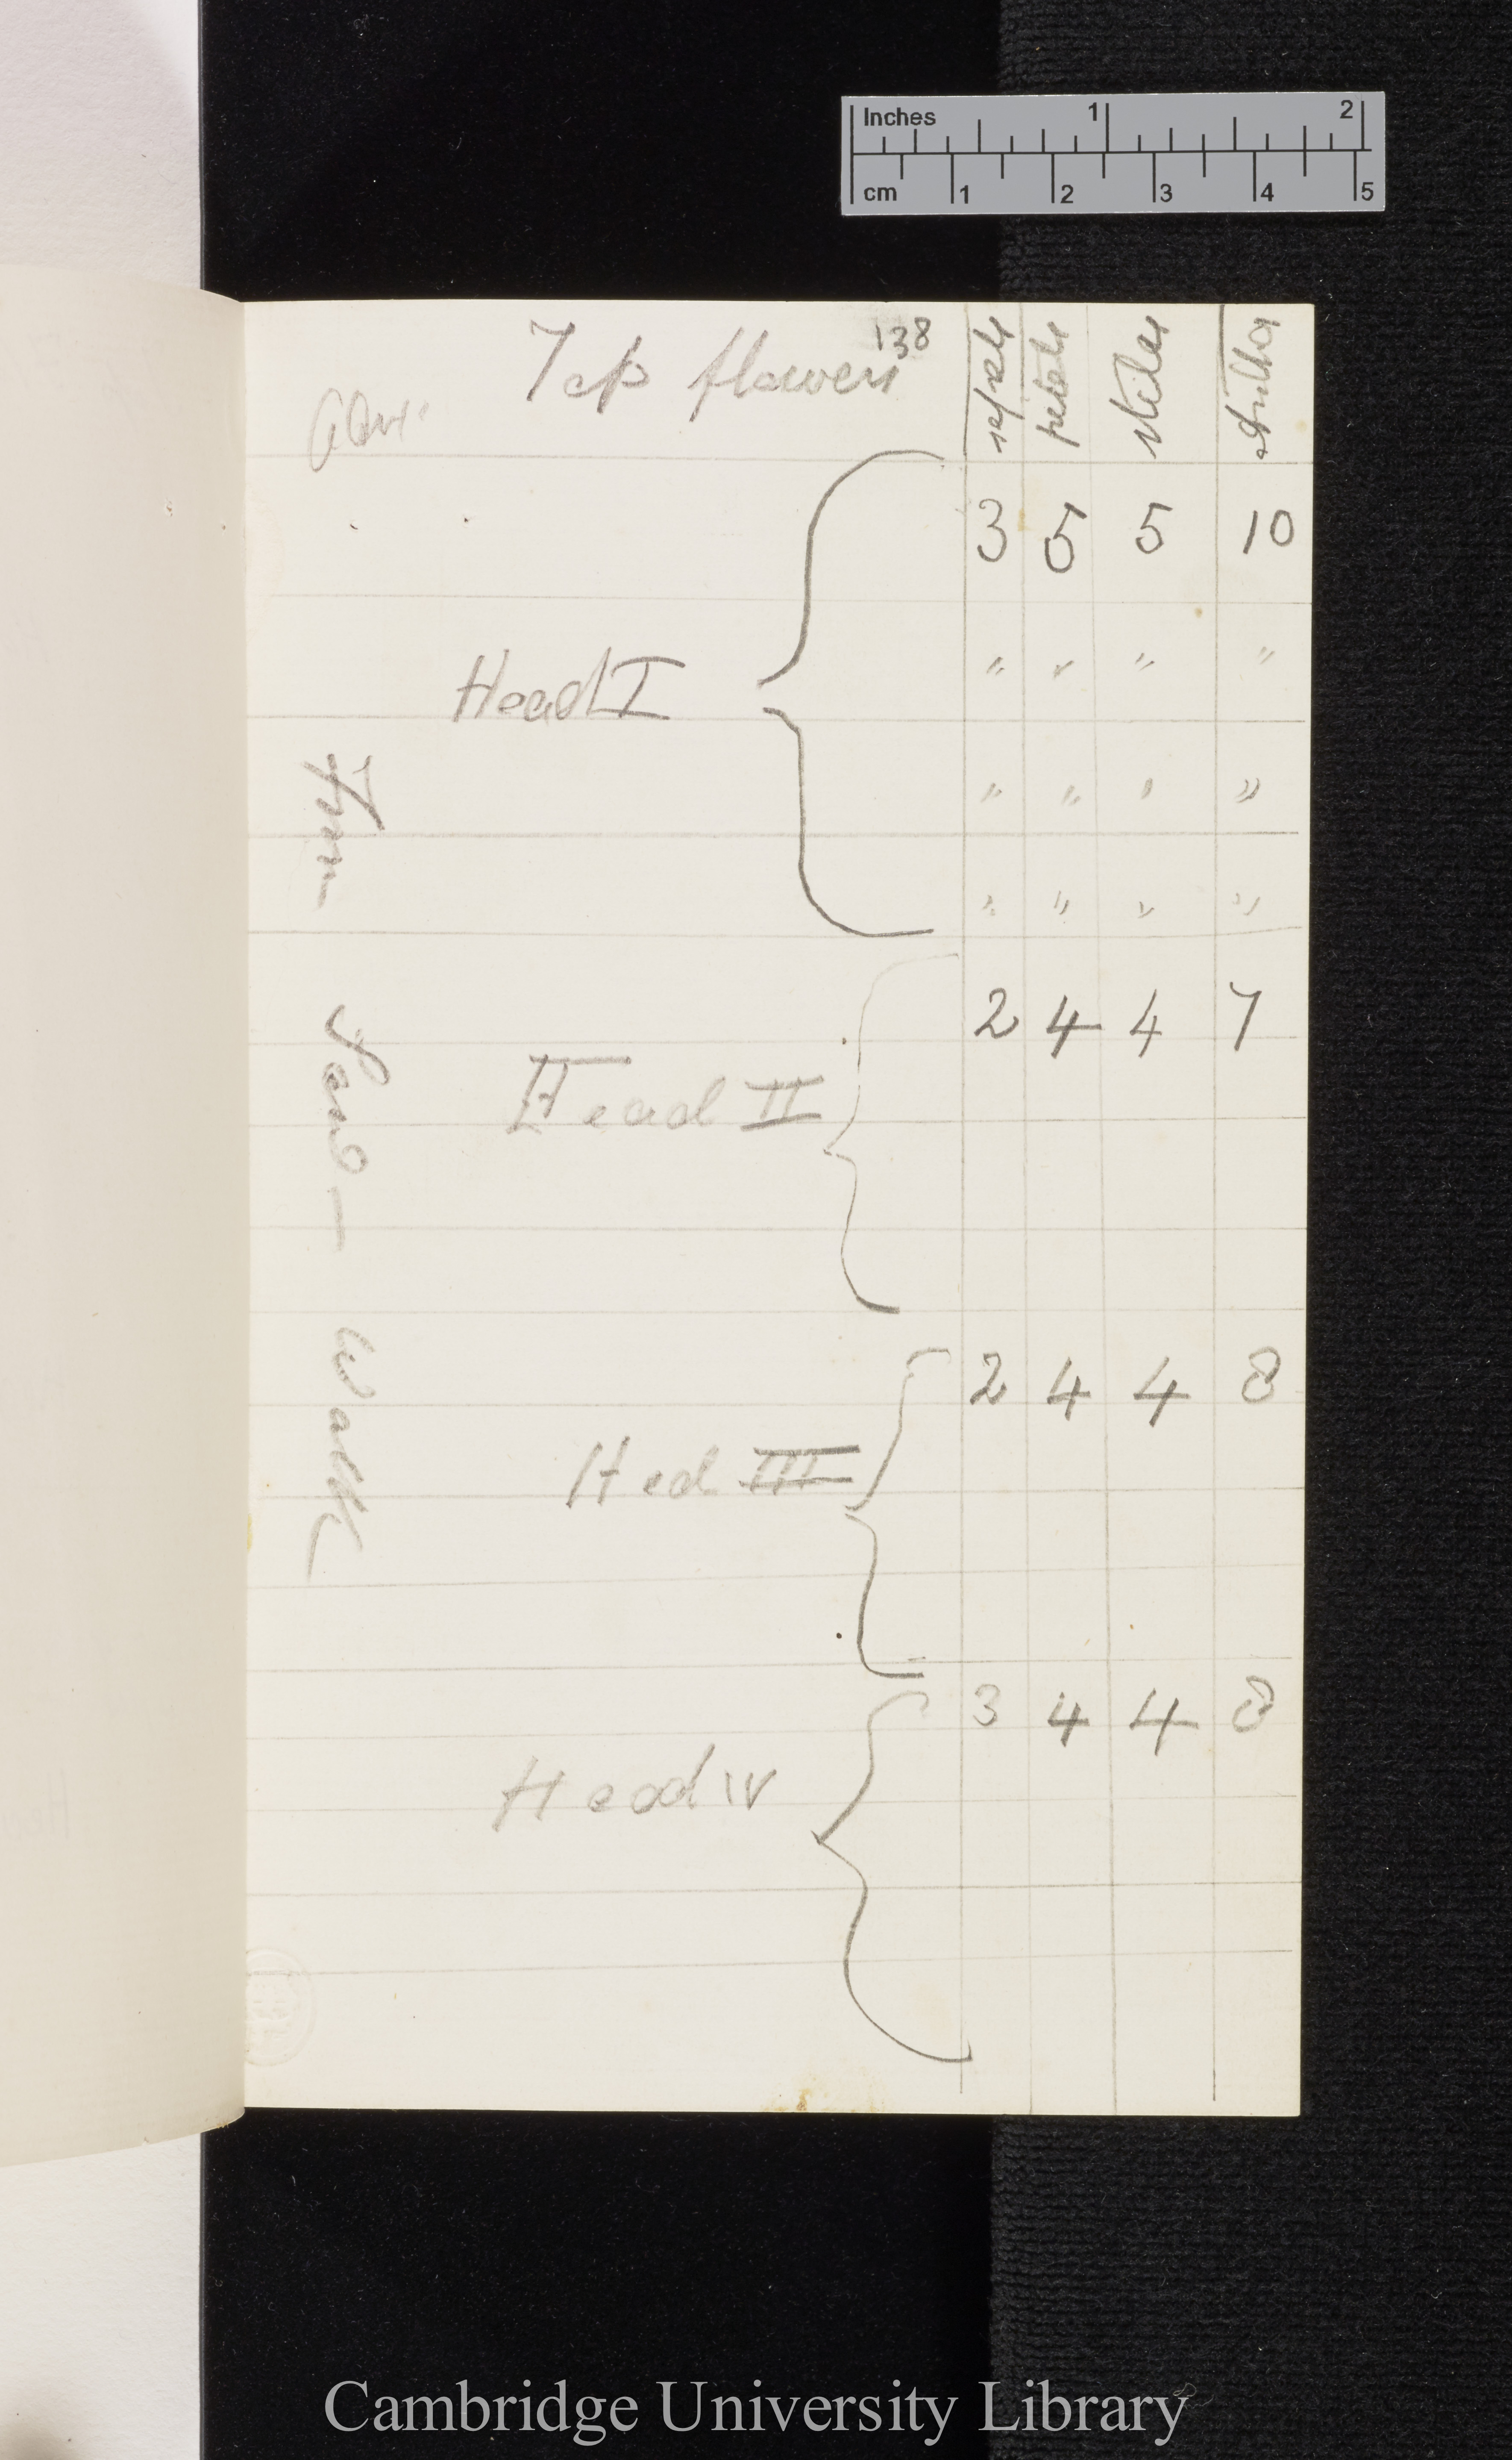 Inches 1 2
cm 1 2 3 4 5
138
Top flowers sepals petals stiles
Head I 3 5 5 10
" " " "
" " " "
" " " "
Head II 2 4 4 7
Hed III 2 4 4 8
Head IV 3 4 4 8
Sand — Walk
Cambridge University Library